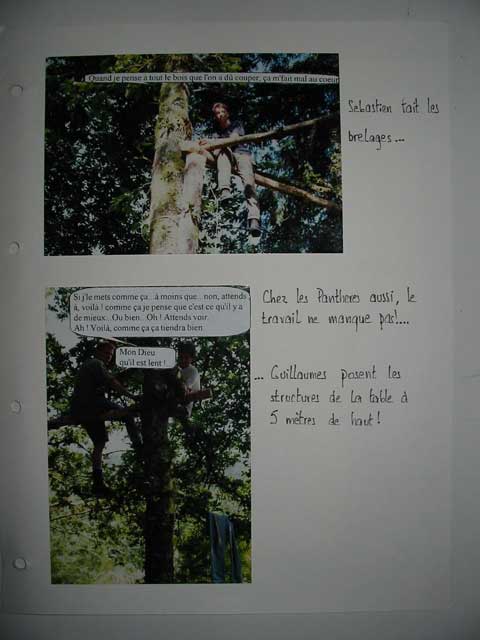 Quand je pense à tout le bois que l'on a dû couper, ça m'fait mal au coeur
Sebastien fait les
brelages...
Si j'le mets comme ça.. à moins que.. non, attends
à, voilà ! comme ça je pense que c'est ce qu'il y a
de mieux.. Ou bien.. Oh ! Attends voir.
Ah ! Voilà, comme ça ça tiendra bien.
Mon Dieu
qu'il est lent !
Chez les Panthères aussi, le
travail ne manque pas!...
... Guillaumes posent les
structures de la table à
5 mètres de haut!